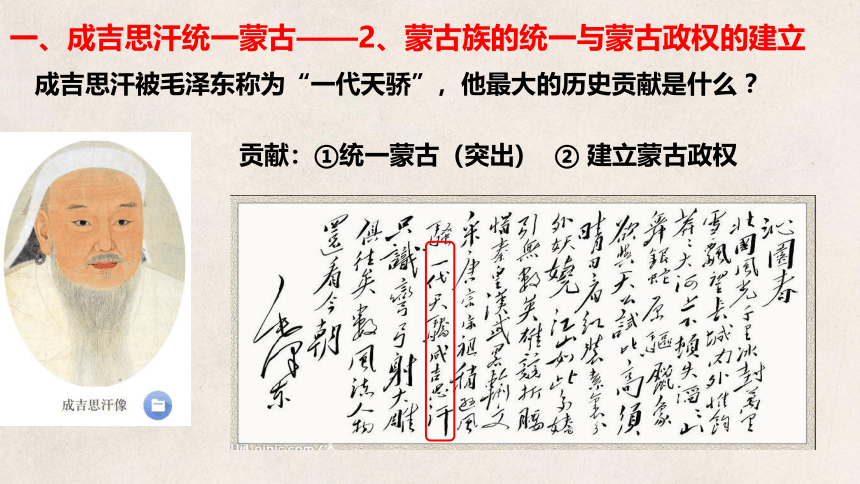 一、成吉思汗统一蒙古——2、蒙古族的统一与蒙古政权的建立
成吉思汗被毛泽东称为“一代天骄”，他最大的历史贡献是什么？
贡献：①统一蒙古（突出） ② 建立蒙古政权
沁園春
北國風光千里冰封萬里
雪飄望長城内外惟餘
莽々大河上下頓失滔々山
舞銀蛇原驅臘象
欲與天公試比高須
晴日看紅裝素裹分
外妖嬈江山如此多嬌
引無數英雄競折腰
惜秦皇漢武略輸文
采唐宗宋祖稍遜風
騷一代天驕成吉思汗
只識彎弓射大雕
俱往矣數風流人物
還看今朝
毛澤东
成吉思汗像